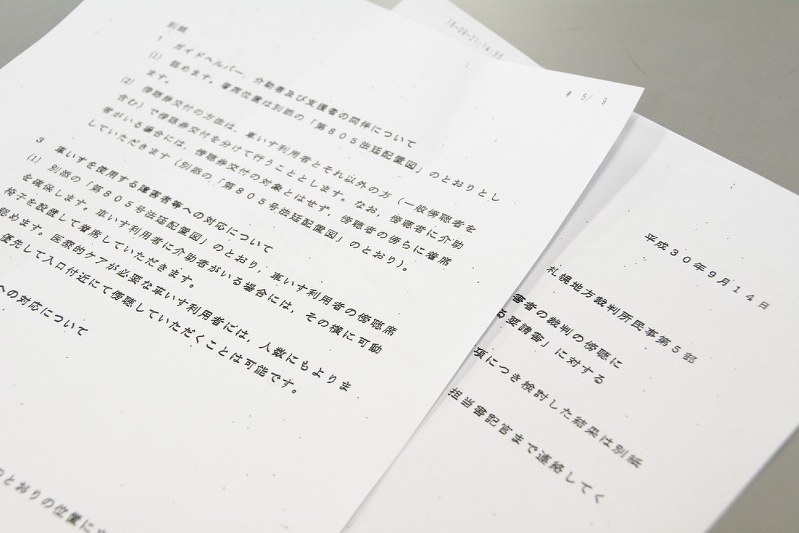 別紙
1 ガイドヘルパー、介助者及び支援者の同伴について
(1) 認めます。着席位置は別添の「第805号法廷配置図」のとおりとし
ます。
(2) 傍聴券交付の方法は、車いす利用者とそれ以外の方（一般傍聴者を
含む）で傍聴券交付を分けて行うこととします。なお、傍聴者に介助
者がいる場合には、傍聴券交付の対象とはせず、傍聴者の傍らに着席
していただきます（別添の「第805号法廷配置図」のとおり）。
3 車いすを使用する障害者等への対応について
(1) 別添の「第805号法廷配置図」のとおり、車いす利用者の傍聴席
を確保します。車いす利用者に介助者がいる場合には、その横に可動
椅子を設置して着席していただきます。
認めます。医療的ケアが必要な車いす利用者には、人数にもよりま
優先して入口付近にて傍聴していただくことは可能です。
への対応について
のとおりの位置に
# 5/ 9
18-09-21;14:50
平成30年9月14日
札幌地方裁判所民事第5部
害者の裁判の傍聴に
る要請書」に対する
項につき検討した結果は別紙
担当書記官まで連絡してく